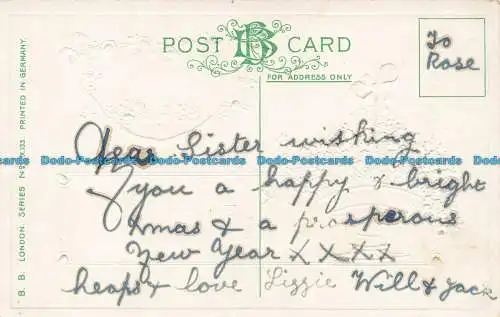 POST CARD
BB
FOR ADDRESS ONLY
To
Rose
Dear Sister wishing
you a happy & bright
Xmas & a prosperous
New Year X X X X
heaps & love Lizzie Will & Jack
B. B. LONDON. SERIES No X.133 PRINTED IN GERMANY.
Dodo-Postcards Dodo-Postcards Dodo-Postcards Dodo-Postcards
Dodo-Postcards Dodo-Postcards Dodo-Postcards Dodo-Postcards